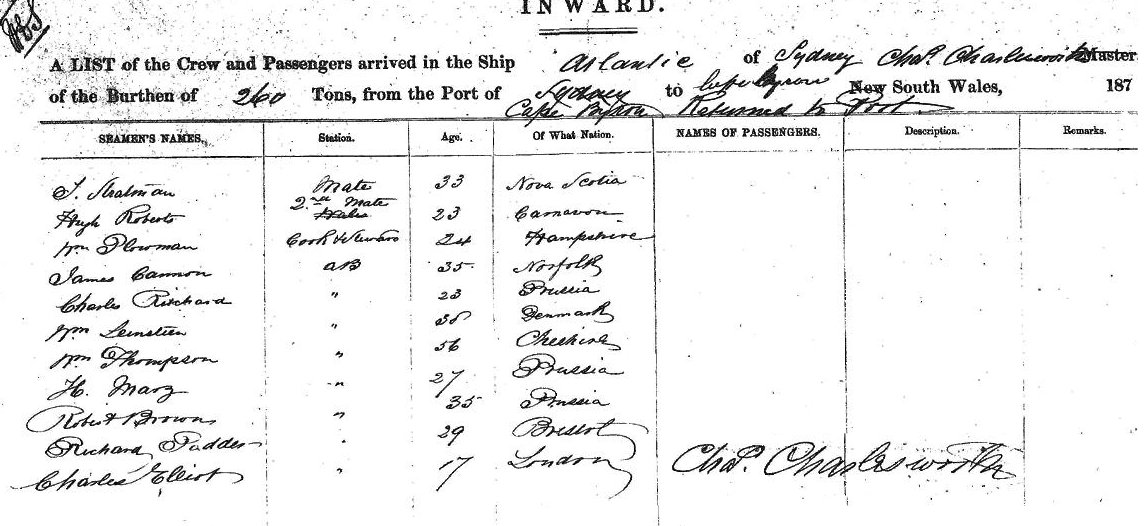 INWARD.
A LIST of the Crew and Passengers arrived in the Ship Atlantic of Sydney Chas. Charlesworth Master
of the Burthen of 260 Tons, from the Port of Sydney to Cape Byron New South Wales, 187
Cape Byron Returned to Port
SEAMEN'S NAMES. Station. Age. Of What Nation. NAMES OF PASSENGERS. Description. Remarks.
Mate 33 Nova Scotia
Hugh Roberts 2nd Mate 23 Carnarvon
Wm Plowman Cook & Steward 24 Hampshire
James Cannon AB 35 Norfolk
Charles Pritchard " 23 Prussia
Wm " Denmark
Wm Thompson " 56 Cheshire
H. Marz " 27 Prussia
Robert Brown " 35 Prussia
Richard " 29 Bristol
Charles Elliot " 17 London Chas. Charlesworth